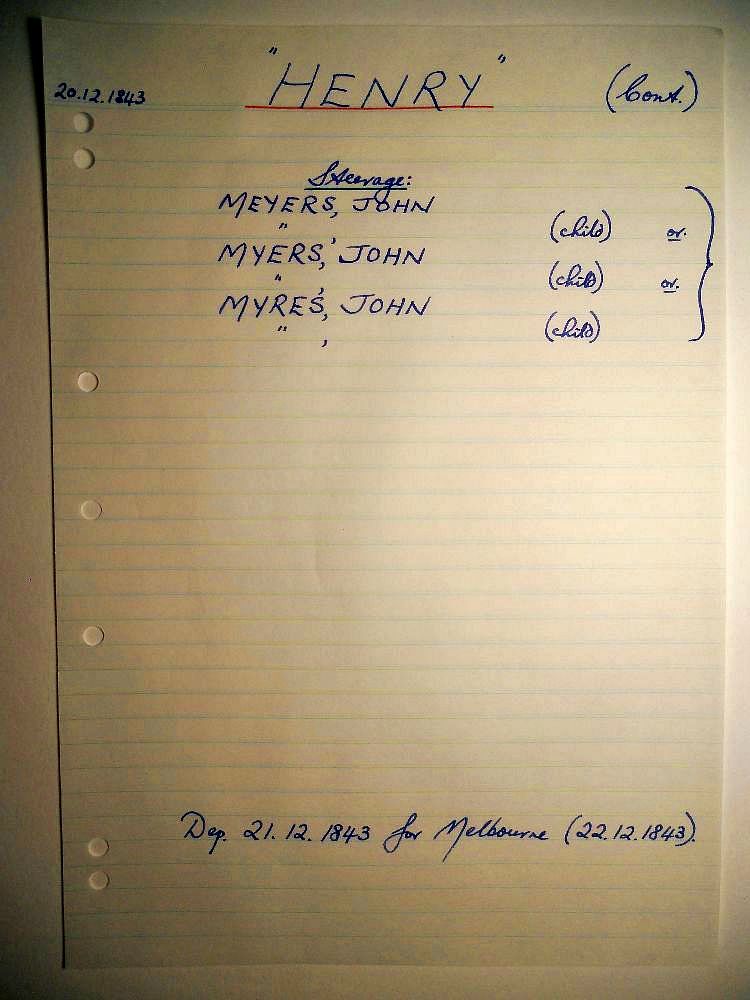 20.12.1843 "HENRY" (Cont.)
Steerage:
MEYERS, JOHN
" , (child) or.
MYERS, JOHN
" , (child) or.
MYRES, JOHN
" , (child)
Dep. 21.12.1843 for Melbourne (22.12.1843).